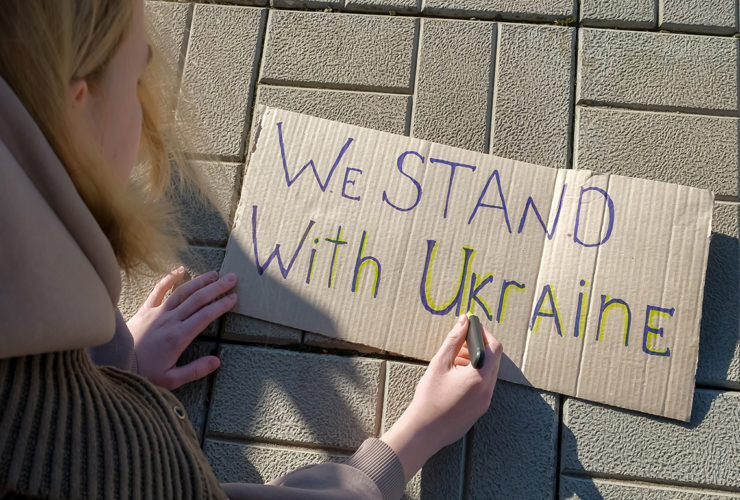 We STAND
With UkrAinE